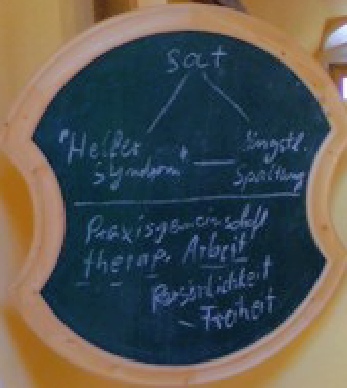 sat
"Helfer
syndrom" — ängstl.
Spaltung
Praxisgemeinschaft
therap. Arbeit
Persönlichkeit
- Freiheit